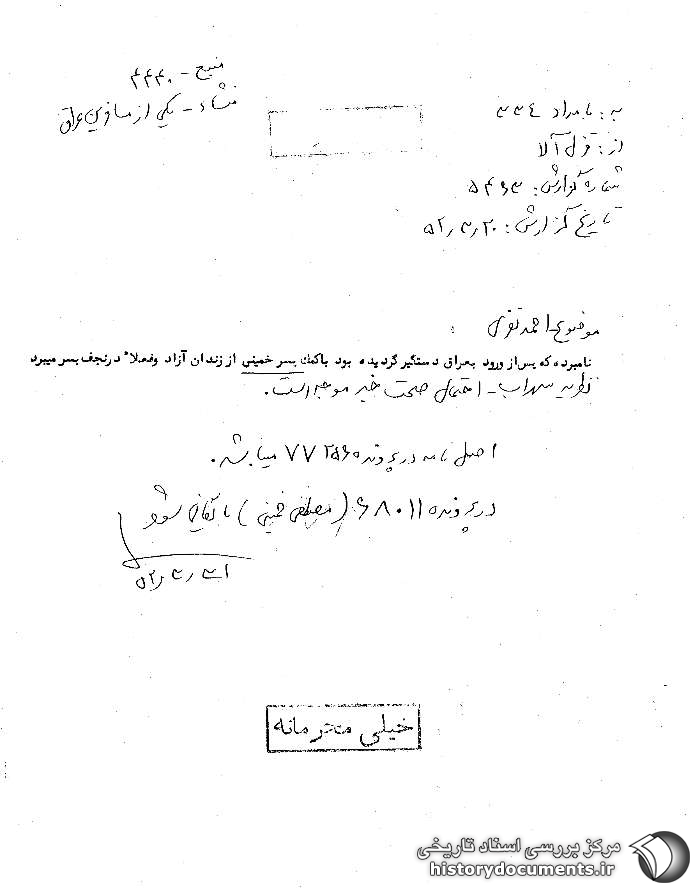 به: بامداد ۳۳۴
از: قزل آلا
شماره گزارش: ۵۴۶۳
تاریخ گزارش: ۵۲٫۳٫۲۰
منبع - ۴۴۴۰
منشاء - یکی از مسافرین عراق
موضوع - احمد نفری :
نامبرده که پس از ورود بعراق دستگیر گردیده بود باکمک پسر خمینی از زندان آزاد وفعلا" درنجف بسر میبرد
نظریه سهراب - احتمال صحت خبر موجود است.
اصل نامه در پرونده ۷۷۲۵۶۰ میباشد.
در پرونده ۶۸۰۱۱ (مصطفی خمینی) بایگانی شود
۵۲٫۳٫۳۱
خیلی محرمانه
مرکز بررسی اسناد تاریخی
historydocuments.ir